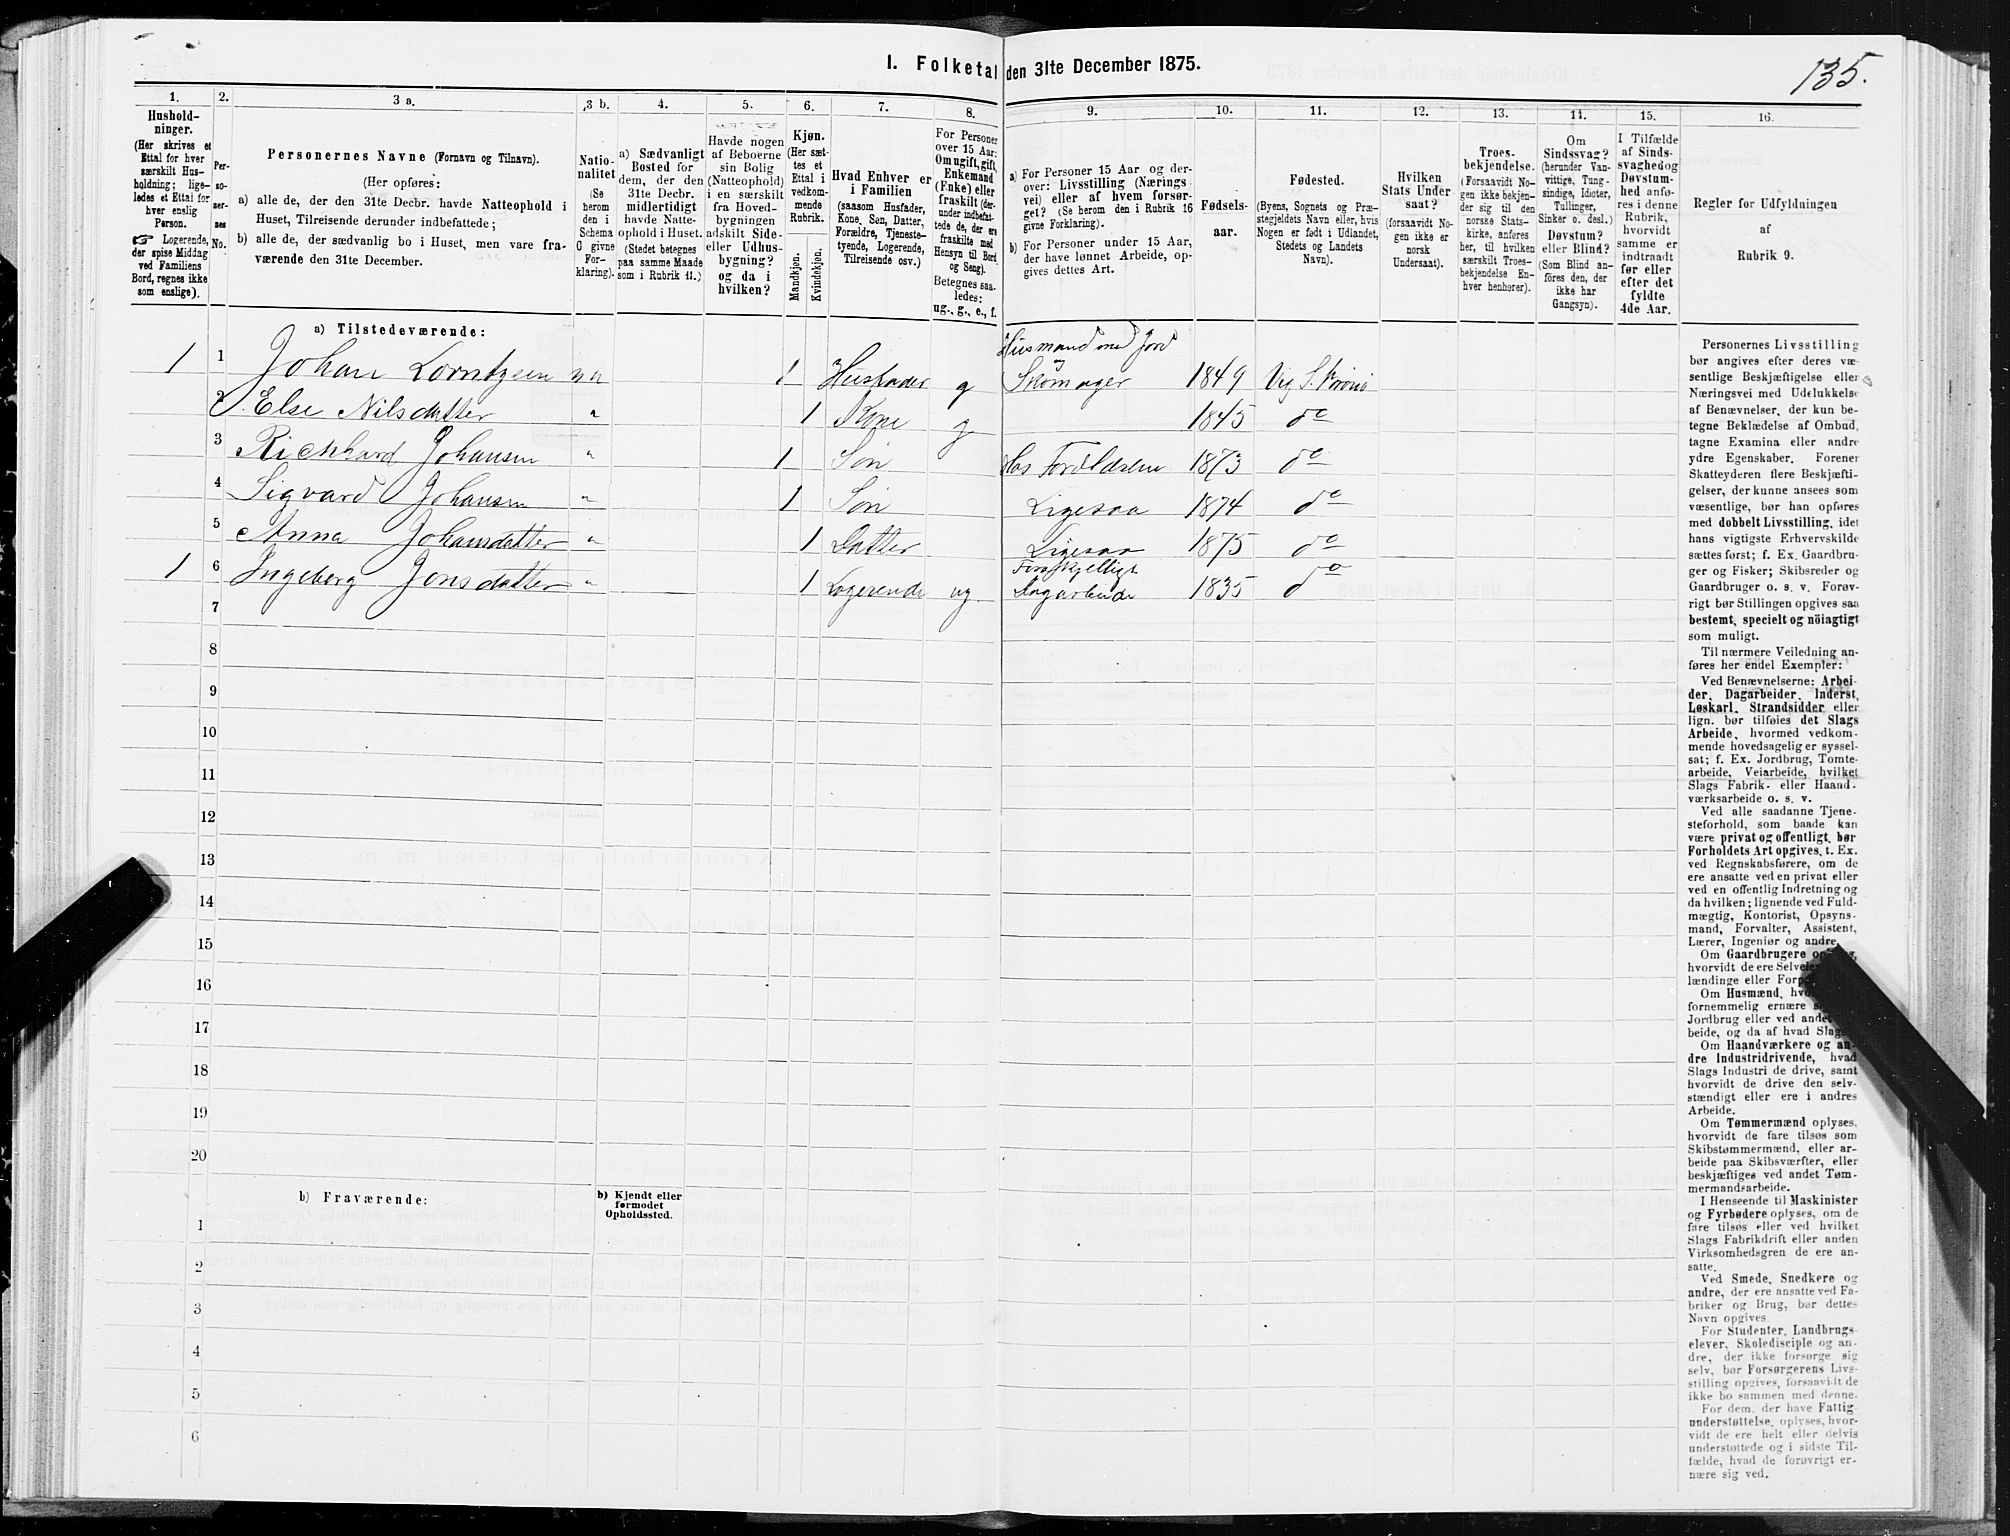 I. Folketal den 31te December 1875.
135.
1.
Hushold-
ninger.
(Her skrives et
Ettal for hver
særskilt Hus-
holdning; lige-
ledes et Ettal for
hver enslig
Person.
☞ Logerende,
der spise Middag
ved Familiens
Bord, regnes ikke
som enslige).
2.
Per-
so-
ner-
nes
No.
3 a.
Personernes Navne (Fornavn og Tilnavn).
(Her opføres:
a) alle de, der den 31te Decbr. havde Natteophold i
Huset, Tilreisende derunder indbefattede;
b) alle de, der sædvanlig bo i Huset, men vare fra-
værende den 31te December.
3 b.
Natio-
nalitet
(Se
herom
den i
Schema
O givne
For-
klaring).
4.
a) Sædvanligt
Bosted for
dem, der den
31te Decbr.
midlertidigt
havde Natte-
ophold i Huset.
(Stedet betegnes
paa samme Maade
som i Rubrik 11.)
5.
Havde nogen
af Beboerne
sin Bolig
(Natteophold)
i en særskilt
fra Hoved-
bygningen
adskilt Side-
eller Udhus-
bygning?
og da i
hvilken?
6.
Kjøn.
(Her sæt-
tes et
Ettal i
vedkom-
mende
Rubrik.
Mandkjøn.
Kvindekjøn.
7.
Hvad Enhver er
i Familien
(saasom Husfader,
Kone, Søn, Datter,
Forældre, Tjeneste-
tyende, Logerende,
Tilreisende osv.)
8.
For Personer
over 15 Aar:
Om ugift, gift,
Enkemand
(Enke) eller
fraskilt (der-
under indbefat-
tede de, der ere
fraskilte med
Hensyn til Bord
og Seng).
Betegnes saa-
ledes:
ug., g., e., f.
9.
a) For Personer 15 Aar og der-
over: Livsstilling (Nærings-
vei) eller af hvem forsør-
get? (Se herom den i Rubrik 16
givne Forklaring).
b) For Personer under 15 Aar,
der have lønnet Arbeide, op-
gives dettes Art.
10.
Fødsels-
aar.
11.
Fødested.
(Byens, Sognets og Præ-
stegjeldets Navn eller, hvis
Nogen er født i Udlandet,
Stedets og Landets
Navn).
12.
Hvilken
Stats Under-
saat?
(forsaavidt No-
gen ikke er
norsk
Undersaat).
13.
Troes-
bekjendelse.
(Forsaavidt No-
gen ikke bekjen-
der sig til den
norske Stats-
kirke, anføres
her, til hvilken
særskilt Troes-
bekjendelse En-
hver henhører).
14.
Om
Sindssvag?
(herunder Van-
vittige, Tung-
sindige, Idioter,
Tullinger,
Sinker o. desl.)
Døvstum?
eller Blind?
(Som Blind an-
føres den, der
ikke har
Gangsyn).
15.
I Tilfælde
af Sinds-
svaghed og
Døvstum-
hed anfø-
res i denne
Rubrik,
hvorvidt
samme er
indtraadt
før eller
efter det
fyldte
4de Aar.
16.
Regler for Udfyldningen
af
Rubrik 9.
a) Tilstedeværende:
Husmand med Jord
1 1 Johan Lorntzsen nn 1 Husfader g Skomager 1849 Vig S. Frønø
2 Else Nilsdatter " 1 Kone g 1845 do
3 Richhard Johansen " 1 Søn Hos Forældrene 1873 do
4 Sigvard Johansen " 1 Søn Ligesaa 1874 do
5 Anna Johansdatter " 1 Datter Ligesaa 1875 do
Forskjelligt
1 6 Ingeberg Jonsdatter " 1 Logerende ug Dagarbeide 1835 do
7
8
9
10
11
12
13
14
15
16
17
18
19
20
b) Fraværende:
b) Kjendt eller
formodet
Opholdssted.
1
2
3
4
5
6
Personernes Livsstilling
bør angives efter deres væ-
sentlige Beskjæftigelse eller
Næringsvei med Udelukkelse
af Benævnelser, der kun be-
tegne Beklædelse af Ombud,
tagne Examina eller andre
ydre Egenskaber. Forener
Skatteyderen flere Beskjæfti-
gelser, der kunne ansees som
væsentlige, bør han opføres
med dobbelt Livsstilling, idet
hans vigtigste Erhvervskilde
sættes først; f. Ex. Gaardbru-
ger og Fisker; Skibsreder og
Gaardbruger o. s. v. Forøv-
rigt bør Stillingen opgives saa
bestemt, specielt og nöiagtigt
som muligt.
Til nærmere Veiledning an-
føres her endel Exempler:
Ved Benævnelserne: Arbei-
der, Dagarbeider, Inderst,
Løskarl, Strandsidder eller
lign. bør tilføies det Slags
Arbeide, hvormed vedkom-
mende hovedsagelig er syssel-
sat; f. Ex. Jordbrug, Tomte-
arbeide, Veiarbeide, hvilket
Slags Fabrik- eller Haand-
værksarbeide o. s. v.
Ved alle saadanne Tjene-
steforhold, som baade kan
være privat og offentligt, bør
Forholdets Art opgives, t. Ex.
ved Regnskabsførere, om de
ere ansatte ved en privat eller
ved en offentlig Indretning og
da hvilken; lignende ved Fuld-
mægtig, Kontorist, Opsyns-
mand, Forvalter, Assistent,
Lærer, Ingeniør og andre.
Om Gaardbrugere
hvorvidt de ere
lændinge eller
Om Husmænd,
fornemmelig ernære
Jordbrug eller ved andet
beide, og da af hvad Slags
Om Haandværkere og an-
dre Industridrivende, hvad
Slags Industri de drive, samt
hvorvidt de drive den selv-
stændigt eller ere i andres
Arbeide.
Om Tømmermænd oplyses,
hvorvidt de fare tilsøs som
Skibstømmermænd, eller ar-
beide paa Skibsværfter, eller
beskjæftiges ved andet Tøm-
mermandsarbeide.
I Henseende til Maskinister
og Fyrbødere oplyses, om de
fare tilsøs eller ved hvilket
Slags Fabrikdrift eller anden
Virksomhedsgren de ere an-
satte.
Ved Smede, Snedkere og
andre, der ere ansatte ved Fa-
briker og Brug, bør dettes
Navn opgives.
For Studenter, Landbrugs-
elever, Skoledisciple og an-
dre, der ikke forsørge sig
selv, bør Forsørgerens Livs-
stilling opgives, forsaavidt de
ikke bo sammen med denne.
For dem, der have Fattig-
understøttelse, oplyses, hvor-
vidt de ere helt eller delvis
understøttede og i sidste Til-
fælde, hvad de forøvrigt er-
nære sig ved.